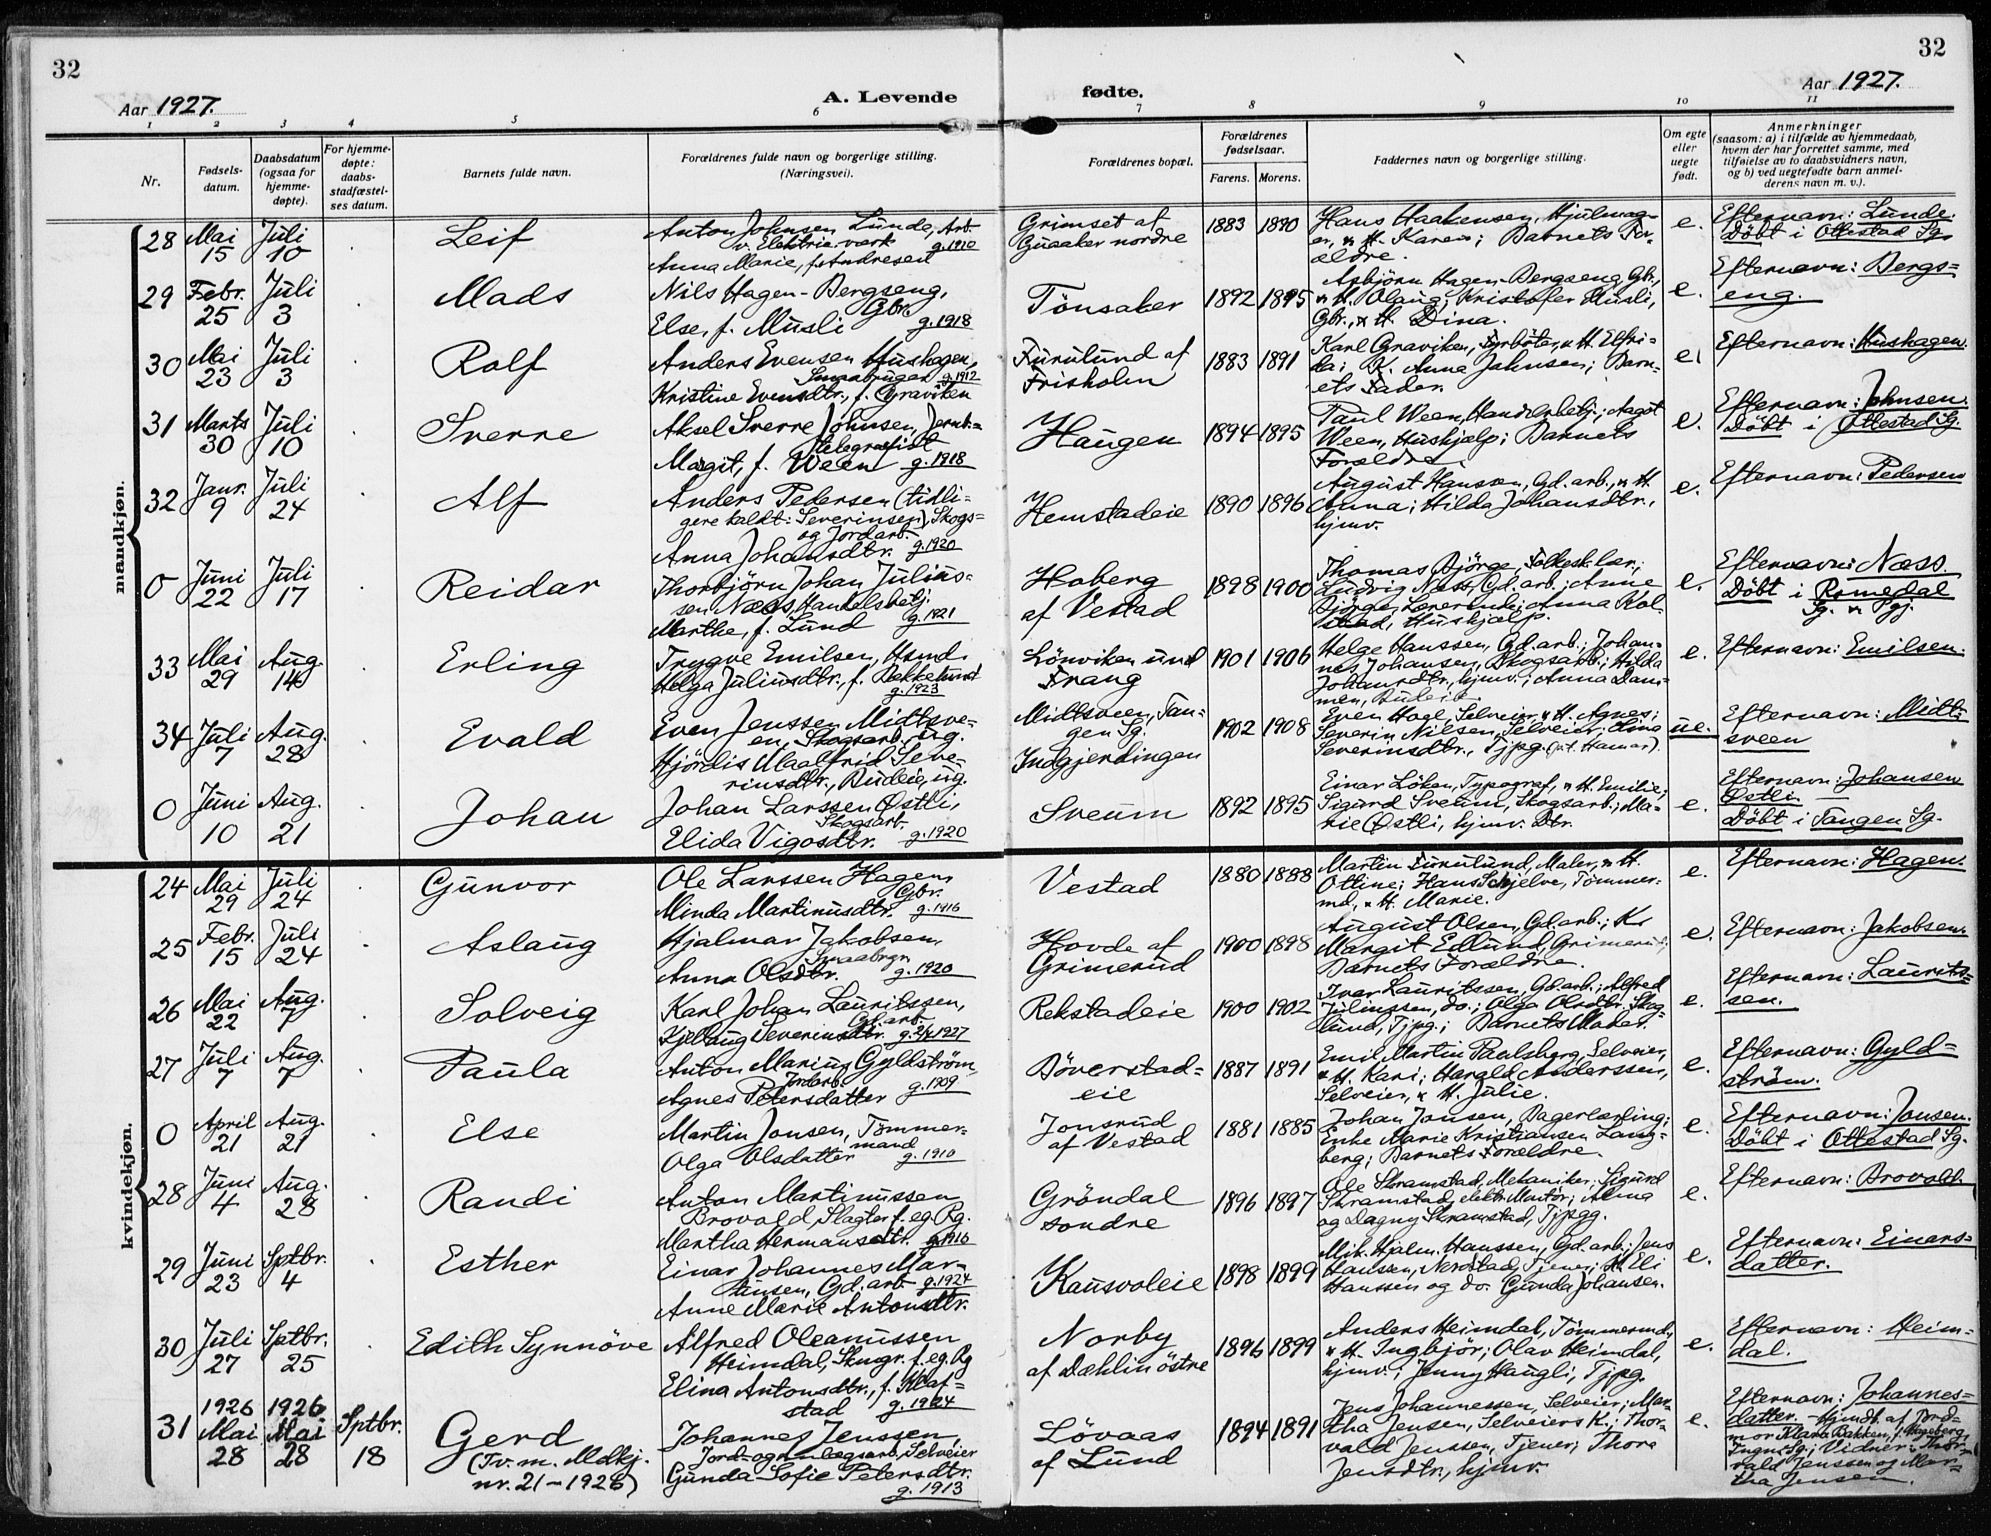 32
32
Aar 1927.
A. Levende
fødte.
Aar 1927.
1 2 3 4 5 6 7 8 9 10 11
Nr.
Fødsels-
datum.
Daabsdatum
(ogsaa for
hjemme-
døpte).
For hjemme-
døpte:
daabs-
stadfæstel-
ses datum.
Barnets fulde navn.
Forældrenes fulde navn og borgerlige stilling.
(Næringsvei).
Forældrenes bopæl.
Forældrenes
fødselsaar.
Farens. Morens.
Faddernes navn og borgerlige stilling.
Om egte
eller
uegte
født.
Anmerkninger
(saasom: a) i tilfælde av hjemmedaab,
hvem der har forrettet samme, med
tilføielse av to daabsvidners navn,
og b) ved uegtefødte barn anmel-
derens navn m. v.).
mandkjøn.
28 Mai 15 Juli 10
Leif
Anton Johnsen Lunde, Arb.
v. Elektric. verk g. 1910
Anna Marie, f. Andresen
Grimset af
Guaaker nordre
1883 1890
Hans Haakensen, Hjulmag-
er, & H. Karen; Barnets For-
ældre.
e.
Efternavn: Lunde.
Döbt i Ottestad Sg.
29 Febr. 25 Juli 3
Mads
Nils Hagen-Bergseng,
Gbr.
Else, f. Musli g. 1918
Tönsaker
1892 1895
Asbjörn Hagen-Bergseng, Gbr.,
& H. Olaug; Kristofer Musli,
Gbr., & H. Dina.
e.
Efternavn: Bergs=
eng.
30 Mai 23 Juli 3
Rolf
Anders Evensen Hushagen,
Smaabruger g. 1912
Kristine Evensdtr., f. Graviken
Furulund af
Frisholm
1883 1891
Karl Graviken, Fyrböter, & H. Elfri-
da; K. Anna Johnsen; Barn-
ets Fader.
e.
Efternavn: Hushagen.
31 Marts 30 Juli 10
Sverre
Aksel Sverre Johnsen, Jernb.=
telegrafist
Margit, f. Ween g. 1918
Haugen
1894 1895
Paul Ween, Handelsbetj.; Aagot
Ween, Hushjælp; Barnets
Forældre.
e.
Efternavn: Johnsen.
Döbt i Ottestad Sg.
32 Janr. 9 Juli 24
Alf
Anders Pedersen (tidli-
gere kaldt: Severinsen), Skogs=
og Jordarb.
Anna Johansdtr. g. 1920
Hemstadeie
1890 1896
August Hansen, Gd. arb., & H.
Anna; Hilda Johansdtr.,
hjmv.
e.
Efternavn: Pedersen
0 Juni 22 Juli 17
Reidar
Thorbjörn Johan Julius-
sen Næss, Handelsbetj.
Marthe, f. Lund g. 1921
Hoberg
af Vestad
1898 1900
Thomas Bjørge, Folkesk. lær.;
Ludvig Næss, Gd. arb.; Anne
Bjørge, Lærerinde; Anna Kol-
stad, Hushjælp.
e.
Efternavn: Næss.
Döbt i Romedal
Sg. & Pgj.
33 Mai 29 Aug. 14
Erling
Trygve Emilsen, Hsmd.
Helga Juliusdtr., f. Bekkelund
g. 1923
Lönviken und
Frang
1901 1906
Helge Hanssen, Gd. arb.; Johan-
nes Johansen, Skogsarb.; Hilda
Johansdtr., hjmv.; Anna Dam-
men, Budeie.
e.
Efternavn: Emilsen.
34 Juli 7 Aug. 28
Evald
Even Jenssen Midtsve-
en, Skogsarb. ug.
Hjördis Maalfrid Seve-
rinsdtr., Budeie, ug.
Midtsveen, Tan-
gen Sg.
Indgjerdingen
1902 1908
Even Hoel, Selveier, & H. Agnes;
Severin Nilsen, Selveier; Lina
Severinsdtr., Tjpg. (pt. Hamar).
ue.
Efternavn: Midt-
sveen
0 Juni 10 Aug. 21
Johan
Johan Larssen Østli,
Skogsarb.
Elida Vigosdtr. g. 1920
Sveum
1892 1895
Einar Löken, Typograf, & H. Emilie;
Sigurd Sveum, Skogsarb.; Ma-
rie Østli, hjmv. Dtr.
e.
Efternavn: Johansen
Østli
Döbt i Tangen Sg.
kvindekjøn.
24 Mai 29 Juli 24
Gunvor
Ole Larssen Hagen,
Gbr.
Minda Martinusdtr. g. 1916
Vestad
1880 1888
Martin Furulund, Maler, & H.
Otline; Hans Schjelve, Tömmer-
md., & H. Marie.
e.
Efternavn: Hagen.
25 Febr. 15 Juli 24
Aslaug
Hjalmar Jakobsen,
Smaabrgr.
Anna Olsdtr. g. 1920
Hovde af
Grimerud
1900 1898
August Olsen, Gd. arb.; K.
Margit Edlund, Grimerud;
Barnets Forældre.
e.
Efternavn: Jakobsen.
26 Mai 22 Aug. 7
Solveig
Karl Johan Lauritssen,
Gd. arb.
Kjellaug Severinsdtr. g. 1927
Rekstadeie
1900 1902
Ivar Lauritssen, Gd. arb.; Alfred
Juliussen, do.; Olga Olsdtr. Skog-
lund, Tjpg.; Barnets Moder.
e.
Efternavn: Laurits-
sen.
27 Juli 7 Aug. 7
Paula
Anton Marius Gyldström,
Jordarb.
Agnes Petersdatter g. 1909
Döverstad-
eie
1887 1891
Emil Martin Paulsberg, Selveier,
& H. Kari; Harald Anderssen,
Selveier, & H. Julie.
e.
Efternavn: Gyld=
ström.
0 April 21 Aug. 21
Else
Martin Jonsen, Tømmer-
mand
Olga Olsdatter g. 1910
Jonsrud
af Vestad
1881 1885
Johan Jonsen, Bagerlærling;
Enke Marie Kristiansen Lang-
berg; Barnets Forældre.
e.
Efternavn: Jonsen.
Döbt i Ottestad Sg.
28 Juni 4 Aug. 28
Randi
Anton Martinussen
Brovold, Slagter f. eg. Rg.
Martha Hermansdtr. g. 1916
Gröndal
söndre
1896 1897
Ole Skramstad, Mekaniker; Sigurd
Skramstad, elektr. Montör; Alma
og Dagny Skramstad, Tjpgg.
e.
Efternavn: Brovold.
29 Juni 23 Sptbr. 4
Esther
Einar Johannes Mar-
tinsen, Gd. arb. g. 1924
Anne Marie Antonsdtr.
Kausvoleie
1898 1899
Mik. Hjalm. Hanssen, Gd. arb.; Jens
Hanssen, Nordstad, Tjener; K. Eli
Hanssen og do. Gunda Johansen.
e.
Efternavn: Einars-
datter.
30 Juli 27 Sptbr. 25
Edith Synnöve
Alfred Oleanussen
Heimdal, Skogr. f. eg. Rg
Elina Antonsdtr., f. Klat-
stad g. 1924
Norby
af Dæhlin östre
1896 1899
Anders Heimdal, Tömmermd.,
& H. Ingbjör; Olav Heimdal,
hjmv.; Jenny Haugli, Tjpg.
e.
Efternavn: Heim-
dal.
31 1926 Mai 28 1926 Mai 28 Sptbr. 18
Gerd
(Tv. m. Mdkj.
nr. 21-1926)
Johannes Jenssen,
Jord- og anlegsarb., Selveier
Gunda Sofie Petersdtr.
g. 1913
Lövaas
af Lund
1894 1891
Jens Johannessen, Selveier; Mar-
tha Jensen, Selveiers K.; Thor-
vald Jenssen, Tjener; Thora
Jensdtr., hjmv.
e.
Efternavn: Johannes=
datter. - Hjmdt. af Jord-
mor Klara Bakken, f. Hageberg,
Sg.; Vidner: Thor-
vald Jenssen og Mar-
tha Jensen.